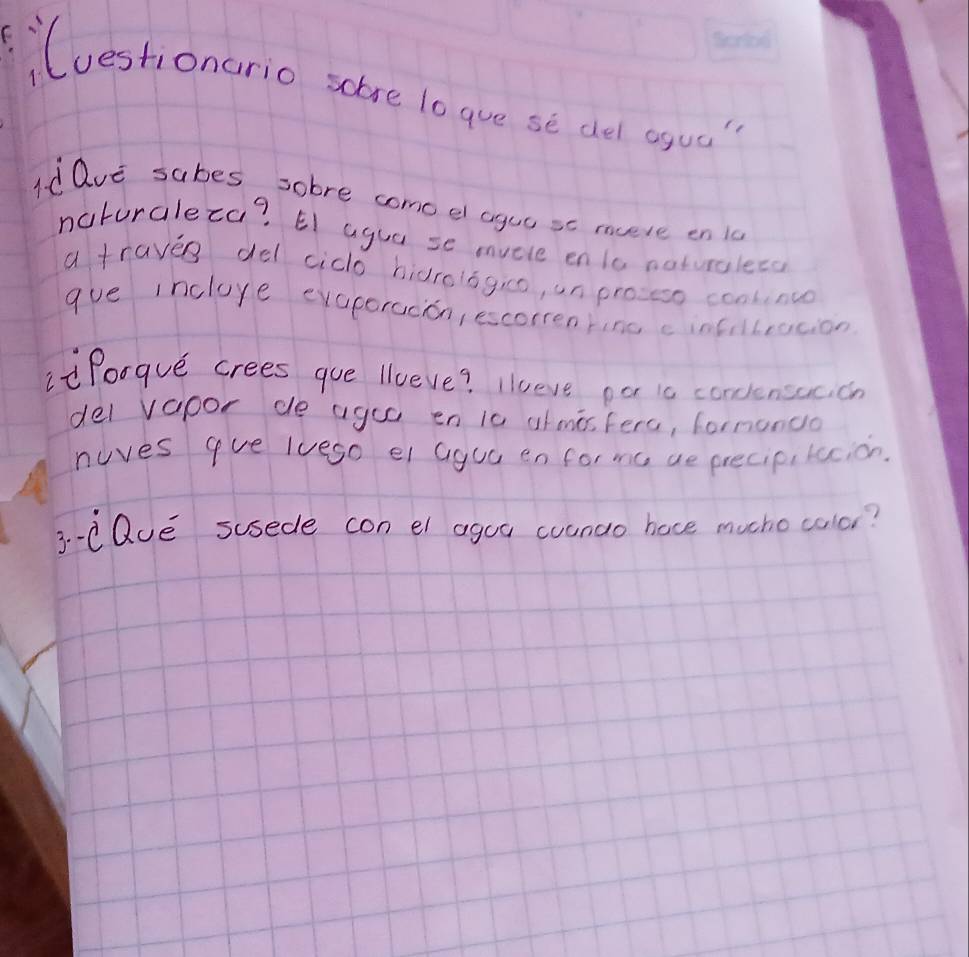 "Cuestionario sobre lo que sé del agua"
1¿Qué sabes sobre como el agua se mueve en la
naturaleza? El agua se mueve en la naturaleza
a través del ciclo hidrológico, un proceso continuo
que incluye evaporación, escorrentina e infiltración.
2¿Porqué crees que llueve? llueve por la condensación
del vapor de agua en la atmósfera, formando
nuves que luego el agua en forma de precipitación.
3.-¿Qué susede con el agua cuando hace mucho calor?